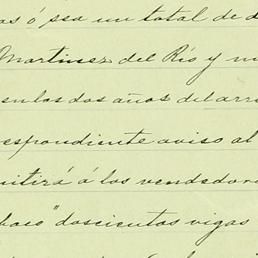 as ó sea un total de d
Martinez del Río y
en los dos años del arr
espondiente aviso al
mitirá á los vendedor
baco" doscientos vigas